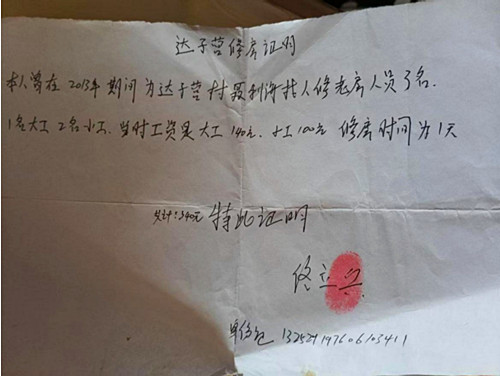 达子营修房证明
本人曾在2013年期间为达子营村聂利海找人修老房人员3名.
1名大工 2名小工、当时工资是大工140元、小工100元 修房时间为1天
共计:340元 特此证明
佟立兴
身份证